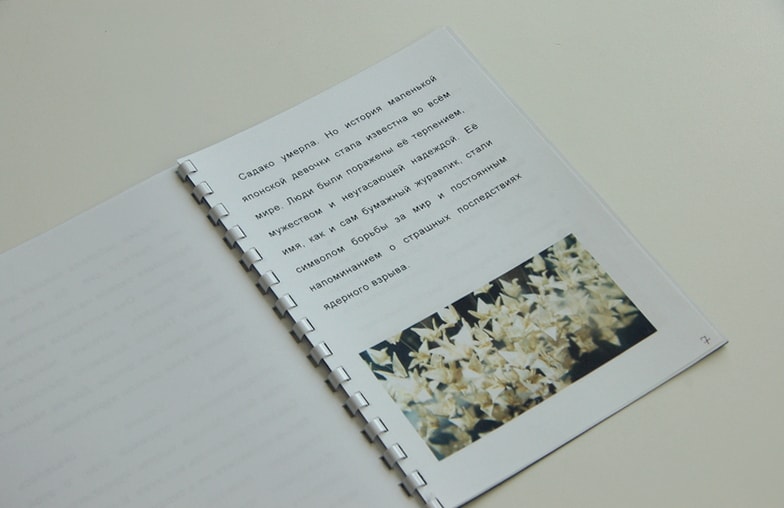 Садако умерла. Но история маленькой
японской девочки стала известна во всём
мире. Люди были поражены её терпением,
мужеством и неугасающей надеждой. Её
имя, как и сам бумажный журавлик, стали
символом борьбы за мир и постоянным
напоминанием о страшных последствиях
ядерного взрыва.
7